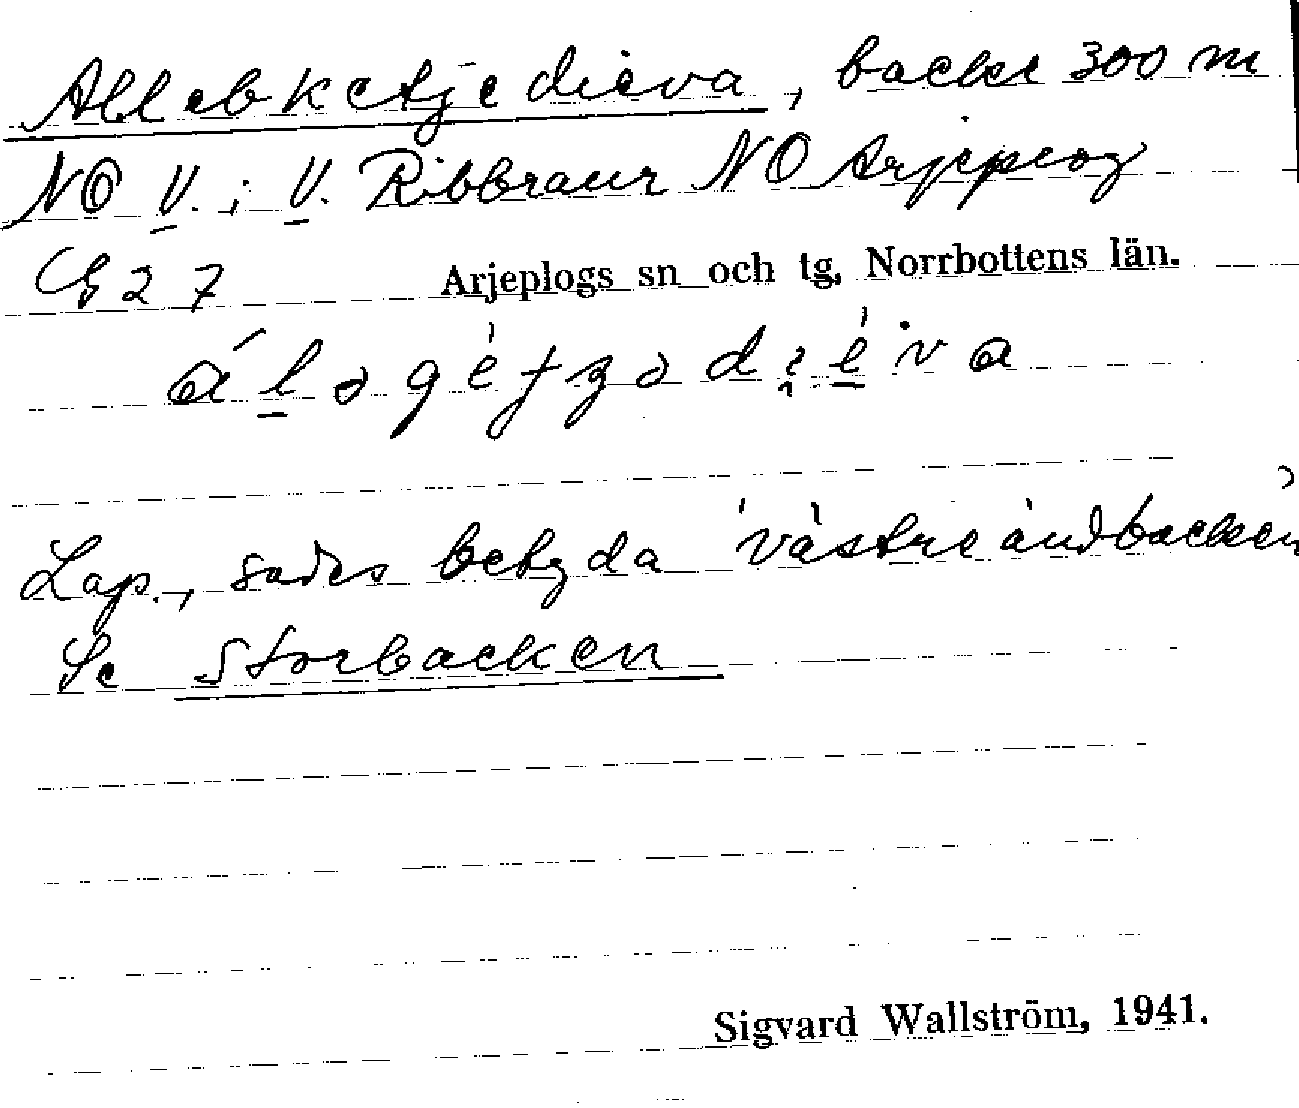 Allebketjedieva, backe 300 m
NO V. i V. Ribbraur NO Arjeplog
G 27 Arjeplogs sn och tg, Norrbottens län.
Lap., sades betyda 'västre ändbacken'
Se Storbacken
Sigvard Wallström, 1941.